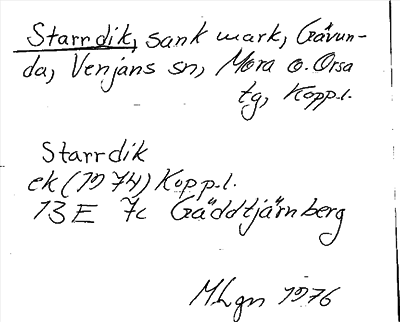 Starrdik, sank mark, Gävun-
da, Venjans sn, Mora o. Orsa
tg, Kopp.l.
Starrdik
ek (1974) Kopp.l.
13E 7c Gäddtjärnberg
MLgn 1976